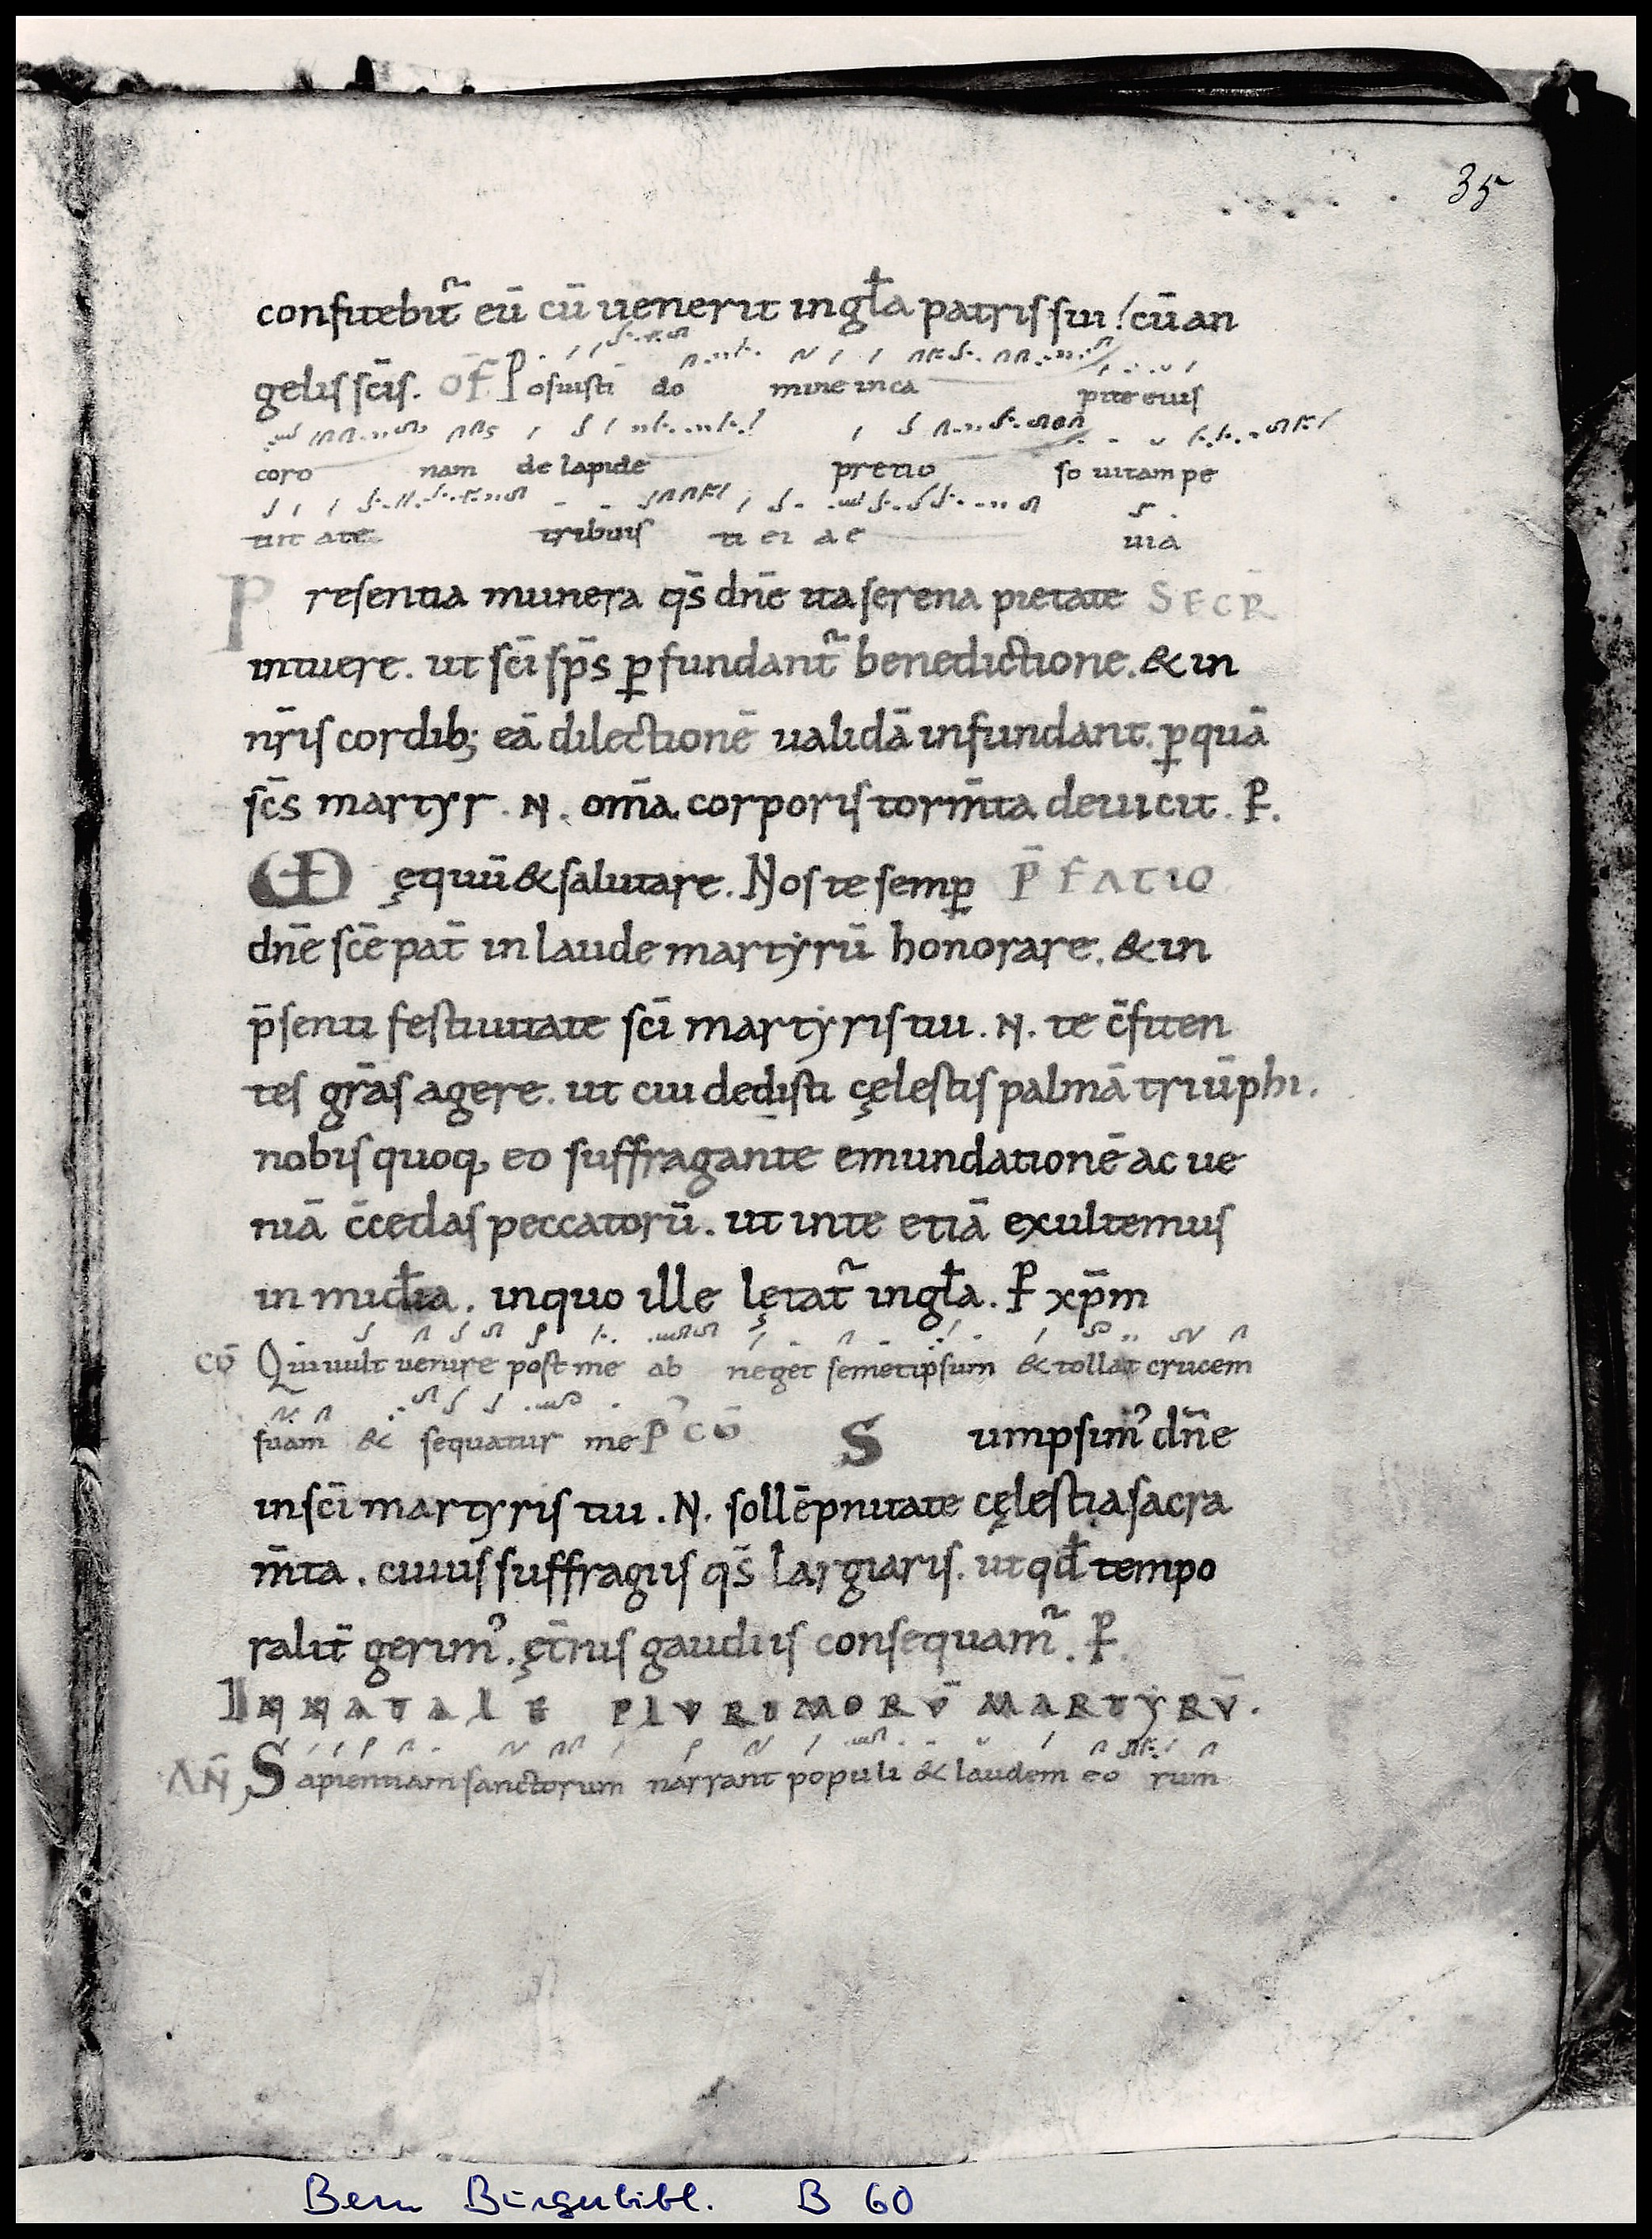 35
confitebit̃ eū cū uenerit in gl̄a patris sui! cū an
gelis sc̄is. OF̄ Posuisti do mine in ca pite eius
coro nam de lapide pretio so uitam pe
tiit a te tribuis ti ei ae uia
Presentia munera qs̄ dn̄e ita serena pietate SECR̄
intuere. ut sc̄i sp̄s ꝑfundant̃ benedictione. & in
nr̄is cordib; eā dilectionē ualidā infundant. ꝑ quā
sc̄s martyr. N. om̄a corporis torm̄ta deuicit. P.
VD ęquū & salutare. Nos te semꝑ P̄FATIO
dn̄e sc̄e pat̄ in laude martẏrū honorare. & in
p̄senti festiuitate sc̄i martẏris tui. N. te c̄fiten
tes gr̄as agere. ut cui dedisti cęlestis palmā triūphi.
nobis quoq, eo suffragante emundationē ac ue
niā c̄cedas peccatorū. ut in te etiā exultemus
in mid̄ia. in quo ille lętat̃ in gl̄a. P xp̄m
CŌ Qui uult uenire post me ab neget semetip̄sum & tollat crucem
suam & sequatur me P᾿ CŌ Sumpsim᾿ dn̄e
in sc̄i martyris tui. N. sollēpnitate cęlestia sacra
m̄ta. cuius suffragiis qs̄ largiaris. ut qd̄ tempo
ralit̄ gerim᾿. ęt̄nis gaudiis consequam̃. P.
IN NATALE PLVRIMORV̄ MARTẎRV̄.
AN̄ Sapientiam sanctorum narrant populi & laudem eo rum
Bern Burgerbibl. B 60